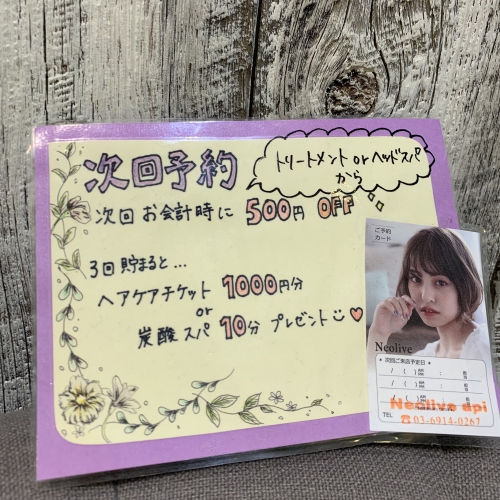 次回予約
トリートメント or ヘッドスパ
から
次回 お会計時に 500円 OFF
3回貯まると...
ヘアケアチケット 1000円分
or
炭酸スパ 10分 プレゼント
ご予約
カード
Neolive
次回ご来店予定日
Neolive epi
TEL ☎03-6914-0267